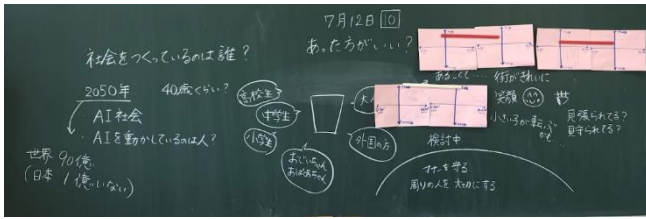 7月12日 10
社会をつくっているのは誰?
あった方がいい?
2050年 40歳くらい?
AI社会
AIを動かしているのは人?
世界 90億
(日本 1億いない)
高校生
中学生
小学生
おじいちゃん
おばあちゃん
外国の方
大
あることで…
街がきれいに
笑顔
小さい子が転ぶ
かも
見張られてる?
見守られてる?
検討中
マナーを守る
周りの人を大切にする